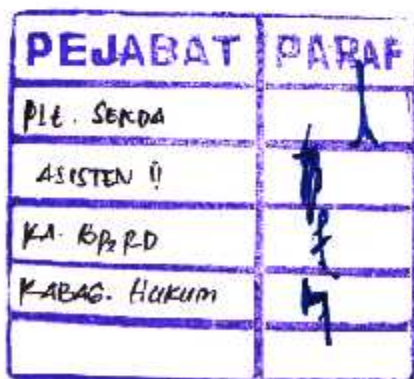 PEJABAT PARAF
Plt. SEKDA
ASISTEN II
KA. BP2RD
KABAG. HUKUM